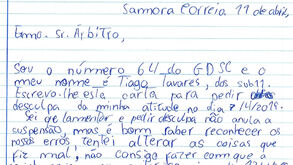 Samora Correia 11 de abril,
Exmo. Sr. Árbitro,
Sou o número 64 do GDSC e o
meu nome é Tiago Tavares, dos sub11.
Escrevo-lhe esta carta para pedir
desculpa da minha atitude no dia 7/4/2019.
Sei que lamentar e pedir desculpa não anula a
suspensão, mas é bom saber reconhecer os
nossos erros, tentei alterar as coisas que
fiz mal, não consigo fazer com que a